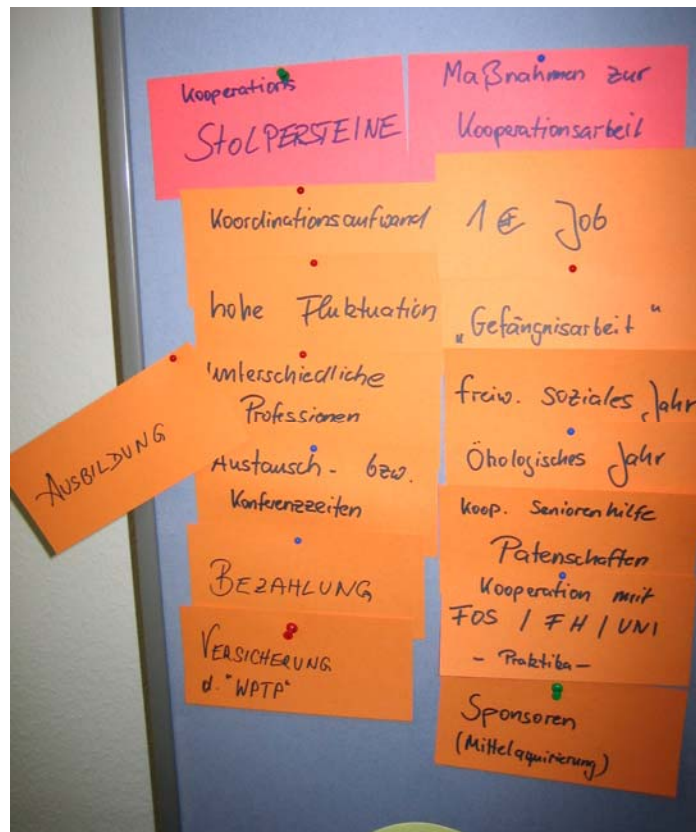 Kooperations
STOLPERSTEINE
Koordinationsaufwand
hohe Fluktuation
unterschiedliche
Professionen
AUSBILDUNG
Austausch- bzw.
Konferenzzeiten
BEZAHLUNG
VERSICHERUNG
d. "WPTP"
Maßnahmen zur
Kooperationsarbeit
1 € Job
"Gefängnisarbeit"
freiw. soziales Jahr
Ökologisches Jahr
Koop. Seniorenhilfe
Patenschaften
Kooperation mit
FOS / FH / UNI
- Praktika -
Sponsoren
(Mittelaquirierung)